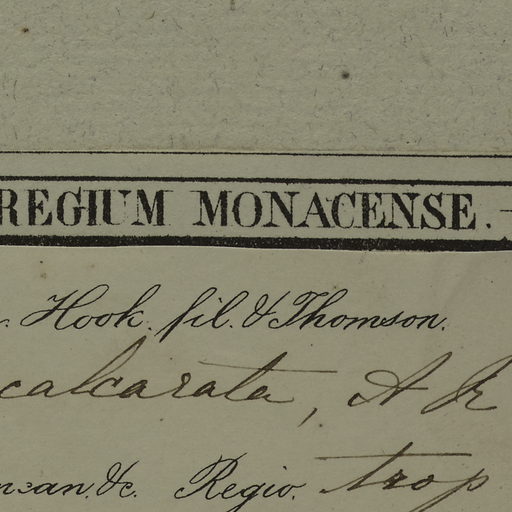 REGIUM MONACENSE.
Hook. fil. & Thomson.
calcarata, A
&c. Regio. trop